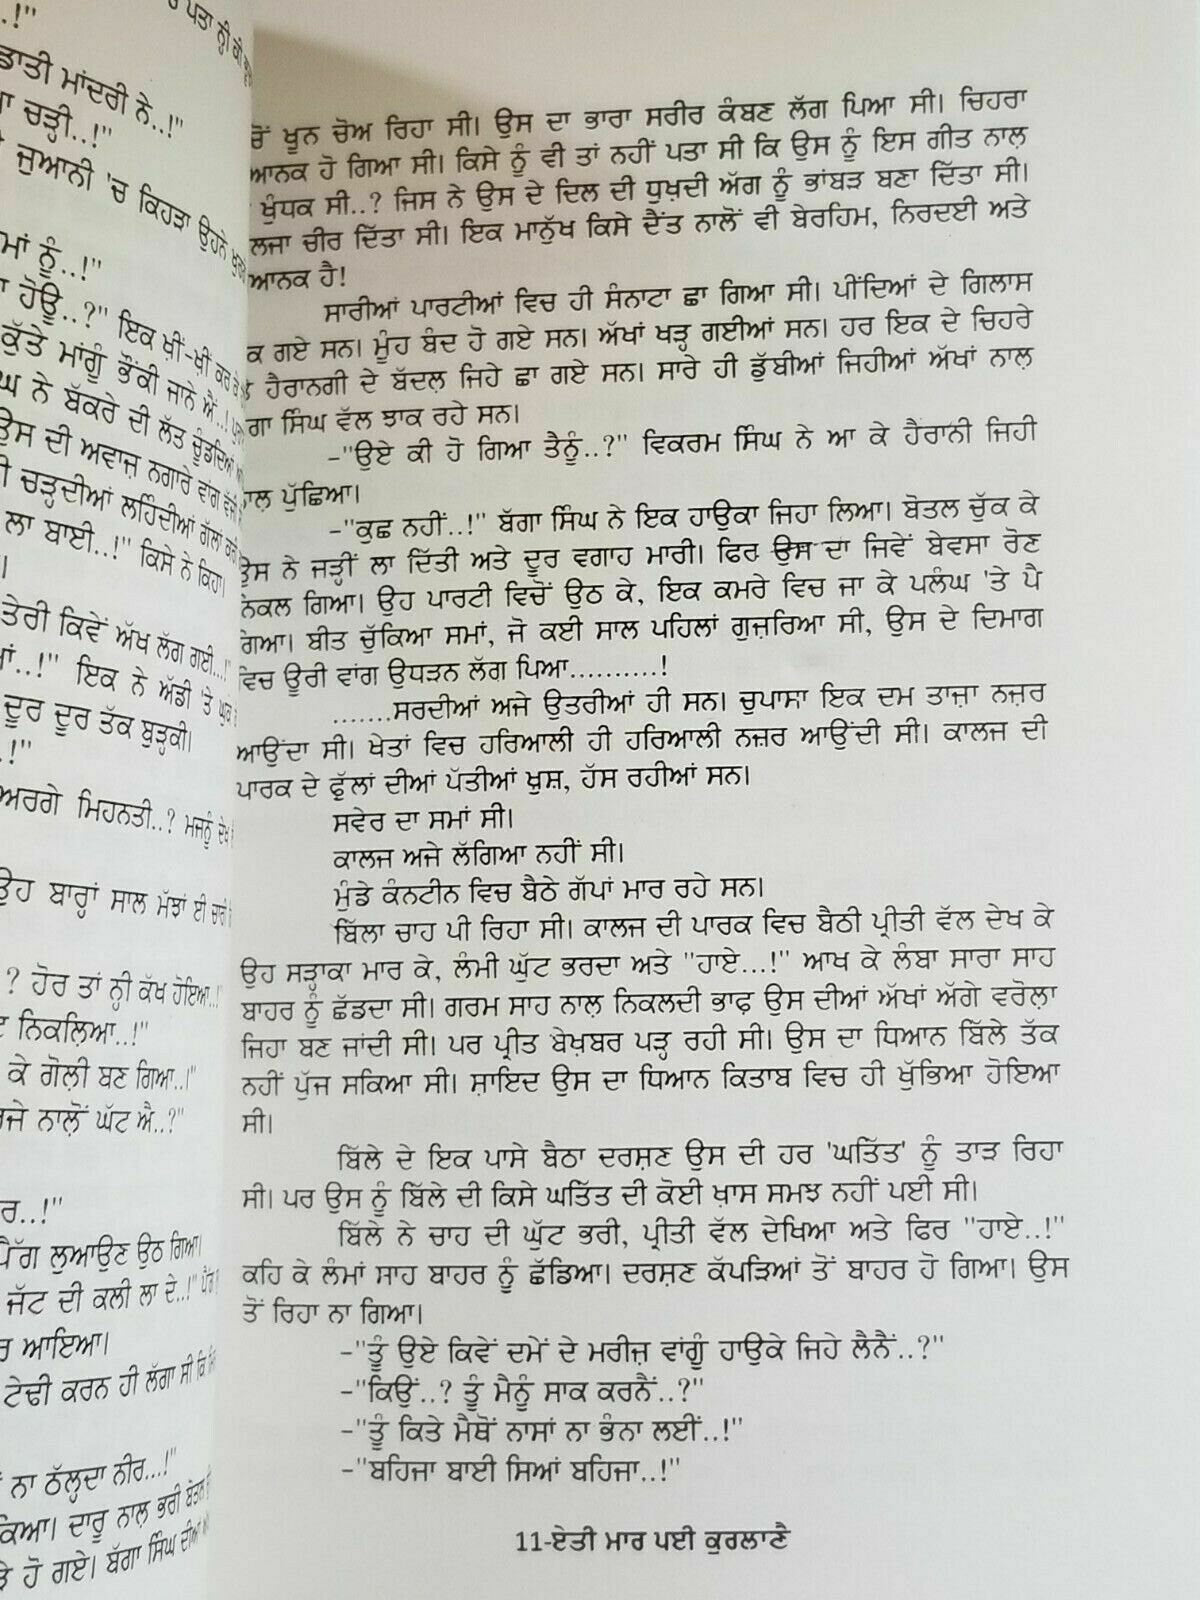 ..!"
ਪਤਾ ਨ੍ਹੀ ਕੀ
ਡਾਤੀ ਮਾਂਦਰੀ ਨੇ..!"
ਚੜ੍ਹੀ..!"
ਜੁਆਨੀ 'ਚ ਕਿਹੜਾ ਉਹਨੇ
ਮਾਂ ਨੂੰ..!"
ਹੋਊ..?" ਇਕ ਖ਼ੀਂ-ਖ਼ੀਂ ਕਰ ਕੇ
ਕੁੱਤੇ ਮਾਂਗੂੰ ਭੌਂਕੀ ਜਾਨੇ ਐਂ..!
ਨੇ ਬੱਕਰੇ ਦੀ ਲੱਤ ਚੂੰਡਦਿਆਂ
ਉਸ ਦੀ ਅਵਾਜ਼ ਨਗਾਰੇ ਵਾਂਗ ਵੱਜੀ
ਚੜ੍ਹਦੀਆਂ ਲਹਿੰਦੀਆਂ ਗੱਲਾਂ ਕਰੀ
ਲਾ ਬਾਈ..!" ਕਿਸੇ ਨੇ ਕਿਹਾ।
ਤੇਰੀ ਕਿਵੇਂ ਅੱਖ ਲੱਗ ਗਈ..!"
..!" ਇਕ ਨੇ ਅੱਡੀ 'ਤੇ ਘੁਕ
ਦੂਰ ਦੂਰ ਤੱਕ ਬੁੜ੍ਹਕੀ।
.!"
ਅਰਗੇ ਮਿਹਨਤੀ..? ਮਜਨੂੰ ਦੇਖ
ਉਹ ਬਾਰ੍ਹਾਂ ਸਾਲ ਮੱਝਾਂ ਈ ਚਾਰੀ
? ਹੋਰ ਤਾਂ ਨ੍ਹੀ ਕੱਖ ਹੋਇਆ..!"
ਨਿਕਲ਼ਿਆ..!"
ਕੇ ਗੋਲ਼ੀ ਬਣ ਗਿਆ..!"
ਨਾਲੋਂ ਘੱਟ ਐ..?"
ਰ..!"
ਪੈੱਗ ਲੁਆਉਣ ਉਠ ਗਿਆ।
ਜੱਟ ਦੀ ਕਲੀ ਲਾ ਦੇ..!"
ਆਇਆ।
ਟੇਢੀ ਕਰਨ ਹੀ ਲੱਗਾ ਸੀ ਕਿ
ਨਾ ਠੱਲ੍ਹਦਾ ਨੀਰ...!"
ਦਾਰੂ ਨਾਲ਼ ਭਰੀ ਬੋਤਲ
ਹੋ ਗਏ। ਬੱਗਾ ਸਿੰਘ ਦੀਆਂ
ਚੋਂ ਖੂਨ ਚੋਅ ਰਿਹਾ ਸੀ। ਉਸ ਦਾ ਭਾਰਾ ਸਰੀਰ ਕੰਬਣ ਲੱਗ ਪਿਆ ਸੀ। ਚਿਹਰਾ
ਆਨਕ ਹੋ ਗਿਆ ਸੀ। ਕਿਸੇ ਨੂੰ ਵੀ ਤਾਂ ਨਹੀਂ ਪਤਾ ਸੀ ਕਿ ਉਸ ਨੂੰ ਇਸ ਗੀਤ ਨਾਲ਼
ਖੁੰਧਕ ਸੀ..? ਜਿਸ ਨੇ ਉਸ ਦੇ ਦਿਲ ਦੀ ਧੁਖ਼ਦੀ ਅੱਗ ਨੂੰ ਭਾਂਬੜ ਬਣਾ ਦਿੱਤਾ ਸੀ।
ਲਜਾ ਚੀਰ ਦਿੱਤਾ ਸੀ। ਇਕ ਮਾਨੁੱਖ ਕਿਸੇ ਦੈਂਤ ਨਾਲੋਂ ਵੀ ਬੇਰਹਿਮ, ਨਿਰਦਈ ਅਤੇ
ਆਨਕ ਹੈ!
ਸਾਰੀਆਂ ਪਾਰਟੀਆਂ ਵਿਚ ਹੀ ਸੰਨਾਟਾ ਛਾ ਗਿਆ ਸੀ। ਪੀਂਦਿਆਂ ਦੇ ਗਿਲਾਸ
ਕ ਗਏ ਸਨ। ਮੂੰਹ ਬੰਦ ਹੋ ਗਏ ਸਨ। ਅੱਖਾਂ ਖੜ੍ਹ ਗਈਆਂ ਸਨ। ਹਰ ਇਕ ਦੇ ਚਿਹਰੇ
ਹੈਰਾਨਗੀ ਦੇ ਬੱਦਲ਼ ਜਿਹੇ ਛਾ ਗਏ ਸਨ। ਸਾਰੇ ਹੀ ਡੁੱਬੀਆਂ ਜਿਹੀਆਂ ਅੱਖਾਂ ਨਾਲ਼
ਗਾ ਸਿੰਘ ਵੱਲ ਝਾਕ ਰਹੇ ਸਨ।
-"ਉਏ ਕੀ ਹੋ ਗਿਆ ਤੈਨੂੰ..?" ਵਿਕਰਮ ਸਿੰਘ ਨੇ ਆ ਕੇ ਹੈਰਾਨੀ ਜਿਹੀ
ਾਲ਼ ਪੁੱਛਿਆ।
-"ਕੁਛ ਨਹੀਂ..!" ਬੱਗਾ ਸਿੰਘ ਨੇ ਇਕ ਹਾਉਕਾ ਜਿਹਾ ਲਿਆ। ਬੋਤਲ ਚੁੱਕ ਕੇ
ਉਸ ਨੇ ਜੜ੍ਹੀਂ ਲਾ ਦਿੱਤੀ ਅਤੇ ਦੂਰ ਵਗਾਹ ਮਾਰੀ। ਫਿਰ ਉਸ ਦਾ ਜਿਵੇਂ ਬੇਵਸਾ ਰੋਣ
ਨਿਕਲ ਗਿਆ। ਉਹ ਪਾਰਟੀ ਵਿਚੋਂ ਉਠ ਕੇ, ਇਕ ਕਮਰੇ ਵਿਚ ਜਾ ਕੇ ਪਲੰਘ 'ਤੇ ਪੈ
ਗਿਆ। ਬੀਤ ਚੁੱਕਿਆ ਸਮਾਂ, ਜੋ ਕਈ ਸਾਲ ਪਹਿਲਾਂ ਗੁਜ਼ਰਿਆ ਸੀ, ਉਸ ਦੇ ਦਿਮਾਗ
ਵਿਚ ਊਰੀ ਵਾਂਗ ਉਧੜਨ ਲੱਗ ਪਿਆ..........!
.......ਸਰਦੀਆਂ ਅਜੇ ਉਤਰੀਆਂ ਹੀ ਸਨ। ਚੁਪਾਸਾ ਇਕ ਦਮ ਤਾਜ਼ਾ ਨਜ਼ਰ
ਆਉਂਦਾ ਸੀ। ਖੇਤਾਂ ਵਿਚ ਹਰਿਆਲੀ ਹੀ ਹਰਿਆਲੀ ਨਜ਼ਰ ਆਉਂਦੀ ਸੀ। ਕਾਲਜ ਦੀ
ਪਾਰਕ ਦੇ ਫੁੱਲਾਂ ਦੀਆਂ ਪੱਤੀਆਂ ਖ਼ੁਸ਼, ਹੱਸ ਰਹੀਆਂ ਸਨ।
ਸਵੇਰ ਦਾ ਸਮਾਂ ਸੀ।
ਕਾਲਜ ਅਜੇ ਲੱਗਿਆ ਨਹੀਂ ਸੀ।
ਮੁੰਡੇ ਕੰਨਟੀਨ ਵਿਚ ਬੈਠੇ ਗੱਪਾਂ ਮਾਰ ਰਹੇ ਸਨ।
ਬਿੱਲਾ ਚਾਹ ਪੀ ਰਿਹਾ ਸੀ। ਕਾਲਜ ਦੀ ਪਾਰਕ ਵਿਚ ਬੈਠੀ ਪ੍ਰੀਤੀ ਵੱਲ ਦੇਖ ਕੇ
ਉਹ ਸੜ੍ਹਾਕਾ ਮਾਰ ਕੇ, ਲੰਮੀ ਘੁੱਟ ਭਰਦਾ ਅਤੇ "ਹਾਏ...!" ਆਖ ਕੇ ਲੰਬਾ ਸਾਰਾ ਸਾਹ
ਬਾਹਰ ਨੂੰ ਛੱਡਦਾ ਸੀ। ਗਰਮ ਸਾਹ ਨਾਲ਼ ਨਿਕਲਦੀ ਭਾਫ਼ ਉਸ ਦੀਆਂ ਅੱਖਾਂ ਅੱਗੇ ਵਰੋਲ਼ਾ
ਜਿਹਾ ਬਣ ਜਾਂਦੀ ਸੀ। ਪਰ ਪ੍ਰੀਤ ਬੇਖ਼ਬਰ ਪੜ੍ਹ ਰਹੀ ਸੀ। ਉਸ ਦਾ ਧਿਆਨ ਬਿੱਲੇ ਤੱਕ
ਨਹੀਂ ਪੁੱਜ ਸਕਿਆ ਸੀ। ਸ਼ਾਇਦ ਉਸ ਦਾ ਧਿਆਨ ਕਿਤਾਬ ਵਿਚ ਹੀ ਖੁੱਭਿਆ ਹੋਇਆ
ਸੀ।
ਬਿੱਲੇ ਦੇ ਇਕ ਪਾਸੇ ਬੈਠਾ ਦਰਸ਼ਣ ਉਸ ਦੀ ਹਰ 'ਘਤਿੱਤ' ਨੂੰ ਤਾੜ ਰਿਹਾ
ਸੀ। ਪਰ ਉਸ ਨੂੰ ਬਿੱਲੇ ਦੀ ਕਿਸੇ ਘਤਿੱਤ ਦੀ ਕੋਈ ਖ਼ਾਸ ਸਮਝ ਨਹੀਂ ਪਈ ਸੀ।
ਬਿੱਲੇ ਨੇ ਚਾਹ ਦੀ ਘੁੱਟ ਭਰੀ, ਪ੍ਰੀਤੀ ਵੱਲ ਦੇਖਿਆ ਅਤੇ ਫਿਰ "ਹਾਏ..!"
ਕਹਿ ਕੇ ਲੰਮਾਂ ਸਾਹ ਬਾਹਰ ਨੂੰ ਛੱਡਿਆ। ਦਰਸ਼ਣ ਕੱਪੜਿਆਂ ਤੋਂ ਬਾਹਰ ਹੋ ਗਿਆ। ਉਸ
ਤੋਂ ਰਿਹਾ ਨਾ ਗਿਆ।
-"ਤੂੰ ਉਏ ਕਿਵੇਂ ਦਮੇਂ ਦੇ ਮਰੀਜ਼ ਵਾਂਗੂੰ ਹਾਉਕੇ ਜਿਹੇ ਲੈਨੈਂ..?"
-"ਕਿਉਂ..? ਤੂੰ ਮੈਨੂੰ ਸਾਕ ਕਰਨੈਂ..?"
-"ਤੂੰ ਕਿਤੇ ਮੈਥੋਂ ਨਾਸਾਂ ਨਾ ਭੰਨਾ ਲਈਂ..!"
-"ਬਹਿਜਾ ਬਾਈ ਸਿਆਂ ਬਹਿਜਾ..!"
11-ਏਤੀ ਮਾਰ ਪਈ ਕੁਰਲਾਣੈ